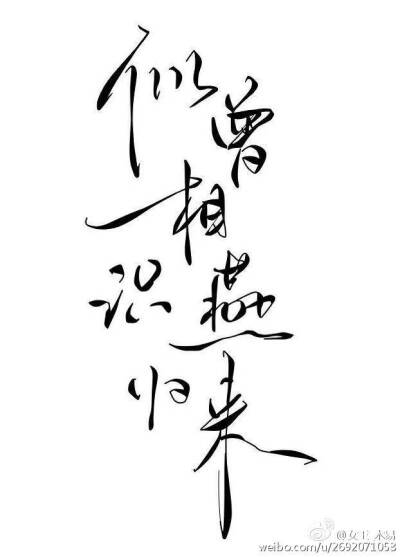 似曾相识燕归来
@女王_木易
weibo.com/u/2692071053